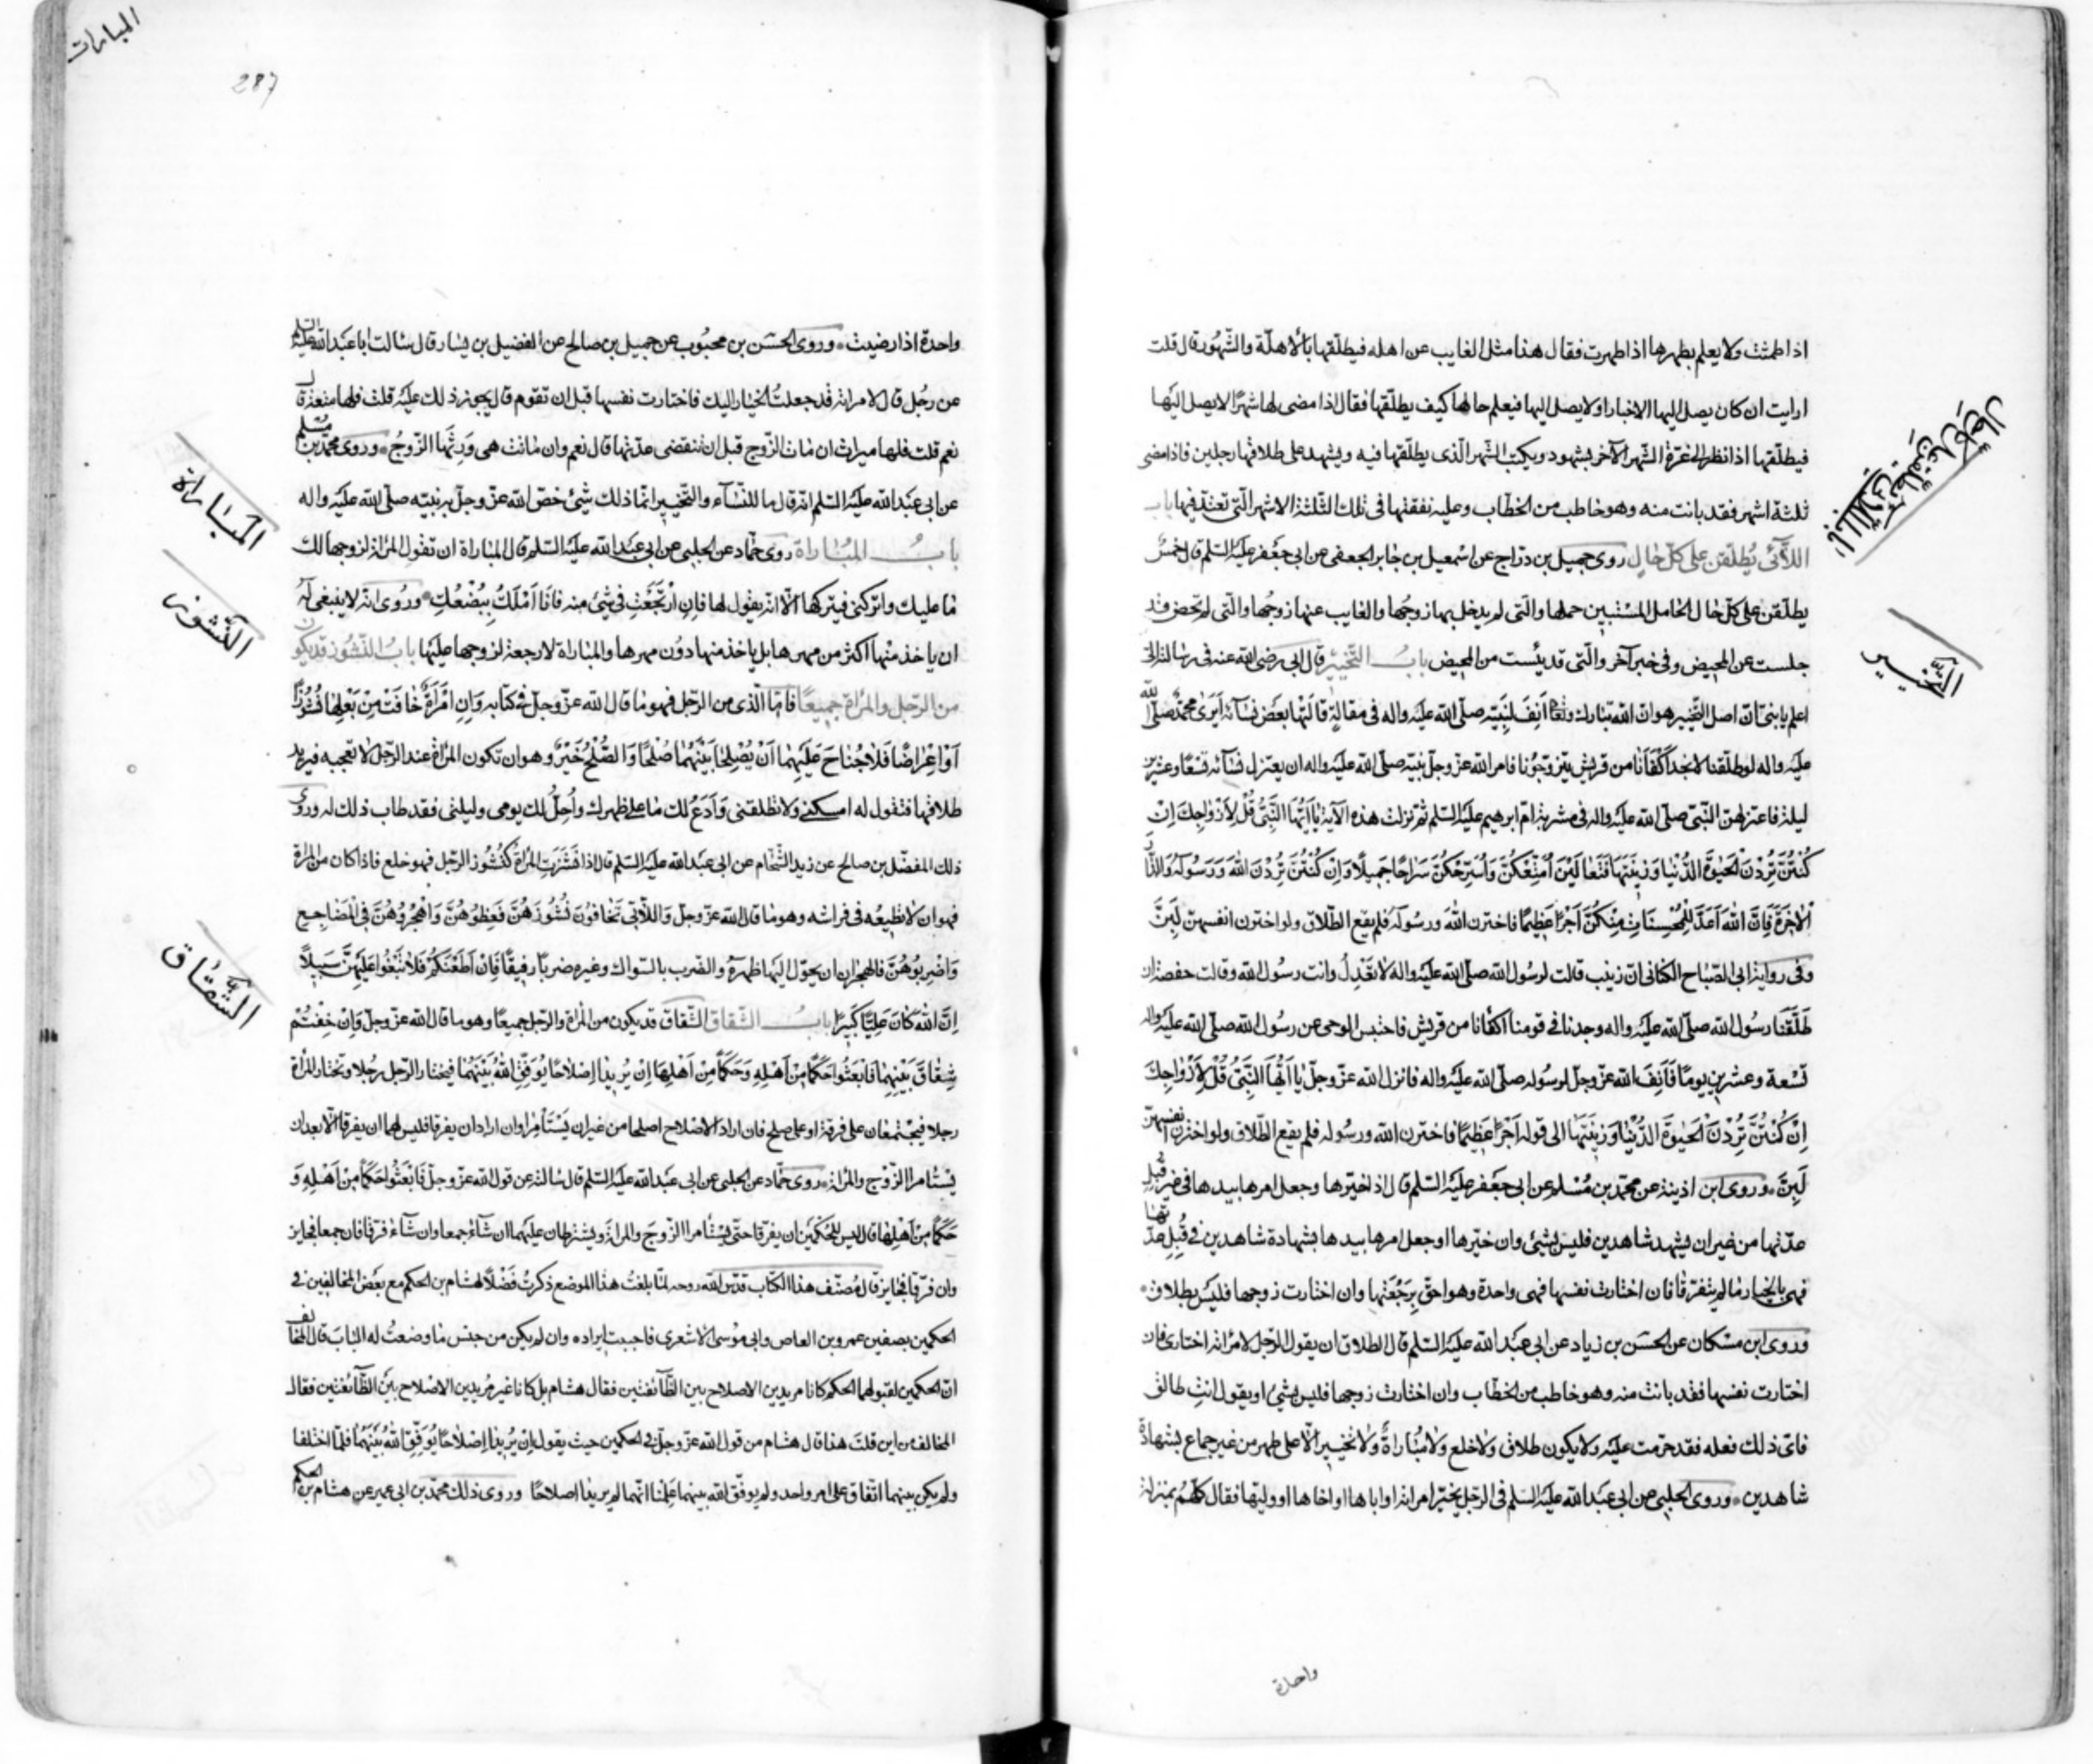 اذا طمثت ولا يعلم بطهرها اذا طهرت فقال هذا مثل الغايب عن اهله فيطلّقها بالأهلّة والشّهور قال قلت
ارايت ان كان يصل اليها الاخبار او لا يصل اليها فيعلم حالها كيف يطلّقها فقال اذا مضى لها شهر لا يصل اليها
فيطلّقها اذا نظر الى غرّة الشّهر الآخر بشهود ويكتب الشّهر الّذى يطلّقها فيه ويشهد على طلاقها رجلين فاذا مضى
ثلثة اشهر فقد بانت منه وهو خاطب من الخطّاب وعليه نفقتها فى تلك الثّلثة الاشهر الّتى تعتدّ فيها باب
اللّائى يُطلّقن على كلّ حال روى جميل بن درّاج عن اسمعيل بن جابر الجعفى عن ابى جعفر عليه السّلم قال خمس
يطلّقن على كلّ حال الحامل المستبين حملها والّتى لم يدخل بها زوجها والغايب عنها زوجها والّتى لم تحض وقد
جلست عن المحيض وفى خبر آخر والّتى قد يئست من المحيض بابُ التّخيير قال ابى رضى الله عنه فى رسالته الىّ
اعلم يا بنىّ انّ اصل التّخيير هو انّ الله تبارك وتعالى اَنِفَ لنبيّه صلّى الله عليه واله فى مقالة قالتها بعض نسآئه أيرى محمّد صلّى الله
عليه واله لو طلّقنا لا نجد اكفآئنا من قريش يتزوّجونا فامر الله عزّ وجلّ نبيّه صلّى الله عليه واله ان يعتزل نسآئه تسعًا وعشرين
ليلة فاعتزلهنّ النّبىّ صلّى الله عليه واله فى مشربة امّ ابرهيم عليه السّلم ثم نزلت هذه الآية يَا اَيُّهَا النَّبِىُّ قُلْ لِاَزْوَاجِكَ اِنْ
كُنْتُنَّ تُرِدْنَ الْحَيٰوةَ الدُّنْيَا وَزِينَتَهَا فَتَعَالَيْنَ اُمَتِّعْكُنَّ وَاُسَرِّحْكُنَّ سَرَاحًا جَمِيلًا وَاِنْ كُنْتُنَّ تُرِدْنَ اللّٰهَ وَرَسُولَهُ وَالدَّارَ
الْاٰخِرَةَ فَاِنَّ اللّٰهَ اَعَدَّ لِلْمُحْسِنَاتِ مِنْكُنَّ اَجْرًا عَظِيمًا فاخترن الله ورسوله فلم يقع الطّلاق ولو اخترن انفسهنّ لَبِنَّ
وفى رواية ابى الصّباح الكنانى انّ زينب قالت لرسول الله صلّى الله عليه واله لا تعدل وانت رسول الله وقالت حفصة ان
طلّقنا رسول الله صلّى الله عليه واله وجدنا فى قومنا اكفائنا من قريش فاحتبس الوحى عن رسول الله صلّى الله عليه واله
تسعة وعشرين يومًا فَاَنِفَ الله عزّ وجلّ لرسوله صلّى الله عليه واله فانزل الله عزّ وجلّ يا اَيُّهَا النَّبِىُّ قُلْ لِاَزْوَاجِكَ
اِنْ كُنْتُنَّ تُرِدْنَ الْحَيٰوةَ الدُّنْيَا وَزِينَتَهَا الى قوله اَجْرًا عَظِيمًا فاخترن الله ورسوله فلم يقع الطّلاق ولو اخترن انفسهنّ
لَبِنَّ وروى ابن اذينة عن محمّد بن مسلم عن ابى جعفر عليه السّلم قال اذا خيّرها وجعل امرها بيدها فى غير قُبل
عدّتها من غير ان يشهد شاهدين فليس بشئ وان خيّرها او جعل امرها بيدها بشهادة شاهدين فى قُبل عدّتها
فهى بالخيار ما لم يتفرّقا فان اختارت نفسها فهى واحدة وهو احقّ برجعتها وان اختارت زوجها فليس بطلاق
وروى ابن مسكان عن الحسن بن زياد عن ابى عبد الله عليه السّلم قال الطلاق ان يقول الرّجل لامرأته اختارى فان
اختارت نفسها فقد بانت منه وهو خاطب من الخطّاب وان اختارت زوجها فليس بشئ او يقول انتِ طالق
فاىّ ذلك فعله فقد حرمت عليه ولا يكون طلاق ولا خلع ولا مباراة ولا تخيير الّا على طهر من غير جماع بشهادة
شاهدين وروى الحلبى عن ابى عبد الله عليه السّلم فى الرّجل يخيّر امراته او اباها او اخاها او وليّها فقال كلّهم بمنزلة
واحدة
اللّاتى يطلّقن على كلّ حال
التّخيير
المبارات
287
واحدة اذا رضيت وروى الحسن بن محبوب عن جميل بن صالح عن الفضيل بن يسار قال سالت ابا عبد الله عليه السّلم
عن رجُل قال لامراته قد جعلتُ الخيار اليك فاختارت نفسها قبل ان تقوم قال يجوز ذلك عليه قلت فلها متعة قال
نعم قلت فلها ميراث ان مات الزّوج قبل ان تنقضى عدّتها قال نعم وان ماتت هى ورثها الزّوجُ وروى محمّد بن مسلم
عن ابى عبد الله عليه السّلم انّه قال ما للنّسآء والتّخيير انّما ذلك شئ خصّ الله عزّ وجلّ به نبيّه صلّى الله عليه واله
بابُ المُبَاراة روى حمّاد عن الحلبى عن ابى عبد الله عليه السّلم قال المباراة ان تقول المراة لزوجها لك
ما عليك واتركنى فيتركها الّا انّه يقول لها فان ارْتَجَعْتِ فى شئ منه فانا اَمْلَكُ ببُضْعِكِ ورُوى انه لا ينبغى له
ان ياخذ منها اكثر من مهرها بل ياخذ منها دون مهرها والمباراة لا رجعة لزوجها عليها بابُ النّشوز قد يكون
من الرّجل والمراة جميعًا فامّا الّذى من الرّجل فهو ما قال الله عزّ وجلّ فى كتابه وَاِنِ امْرَاَةٌ خَافَتْ مِنْ بَعْلِهَا نُشُوزًا
اَوْ اِعْرَاضًا فَلَا جُنَاحَ عَلَيْهِمَا اَنْ يُصْلِحَا بَيْنَهُمَا صُلْحًا وَالصُّلْحُ خَيْرٌ وهو ان تكون المراة عند الرّجل لا تعجبه فيريد
طلاقها فتقول له امسكنى ولا تطلّقنى وَاَدَعُ لك ما على ظهرك واُحلّ لك يومى وليلتى فقد طاب ذلك له وروى
ذلك المفضّل بن صالح عن زيد الشّحّام عن ابى عبد الله عليه السّلم قال اذا نَشَزَتِ المراة كنُشُوز الرّجل فهو خلع فاذا كان من المراة
فهو ان لا تطيعُه فى فراشه وهو ما قال الله عزّ وجلّ وَاللَّاتِى تَخَافُونَ نُشُوزَهُنَّ فَعِظُوهُنَّ وَاهْجُرُوهُنَّ فِى الْمَضَاجِعِ
وَاضْرِبُوهُنَّ فالهجران ان يحوّل اليها ظهره والضّرب بالسّواك وغيره ضربًا رفيقًا فَاِنْ اَطَعْنَكُمْ فَلَا تَبْغُوا عَلَيْهِنَّ سَبِيلًا
اِنَّ اللّٰهَ كَانَ عَلِيًّا كَبِيرًا بابُ الشّقاق الشّقاق قد يكون من المراة والرّجل جميعًا وهو ما قال الله عزّ وجلّ وَاِنْ خِفْتُمْ
شِقَاقَ بَيْنِهِمَا فَابْعَثُوا حَكَمًا مِنْ اَهْلِهِ وَحَكَمًا مِنْ اَهْلِهَا اِنْ يُرِيدَا اِصْلَاحًا يُوَفِّقِ اللّٰهُ بَيْنَهُمَا فيختار الرّجل رجُلا وتختار المراة
رجلا فيجتمعان على فرقة او على صلح فان ارادا الاصلاح اصلحا من غير ان يَسْتَأْمِرا وان ارادا ان يفرقا فليس لهما ان يفرقا الّا بعد ان
يَسْتَأمرا الزّوج والمراة روى حمّاد عن الحلبى عن ابى عبد الله عليه السّلم قال سالته عن قول الله عزّ وجلّ فَابْعَثُوا حَكَمًا مِنْ اَهْلِهِ وَ
حَكَمًا مِنْ اَهْلِهَا قال ليس للحكمين ان يفرّقا حتّى يستأمرا الزّوج والمراة ويشترطان عليهما ان شآءا جمعا وان شآءا فرّقا فان جمعا فجايز
وان فرّقا فجايز قال مُصنّف هذا الكتاب قدّس الله روحه لمّا بلغتُ هذا الموضع ذكرتُ فَضْلًا لهشام بن الحكم مع بعض المخالفين فى
الحكمين بصفين عمرو بن العاص وابى موسى الاشعرى فاحببت ايراده وان لم يكن من جنس ما وضعتُ له الباب قال المخالف
انّ الحكمين لقبولهما الحكم كانا مريدين الاصلاح بين الطّآئفتين فقال هشام بل كانا غير مُريدين الاصلاح بين الطّآئفتين فقال
المخالف من اين قلت هذا قال هشام من قول الله عزّ وجلّ فى الحكمين حيث يقول اِنْ يُرِيدَا اِصْلَاحًا يُوَفِّقِ اللّٰهُ بَيْنَهُمَا فلمّا اختلفا
ولم يكن بينهما اتّفاق على امر واحد ولم يوفّق الله بينهما عَلِمْنا انّهما لم يريدا اصلاحًا وروى ذلك محمّد بن ابى عمير عن هشام بن الحكم
المَبَاراة
النّشوز
الشّقاق